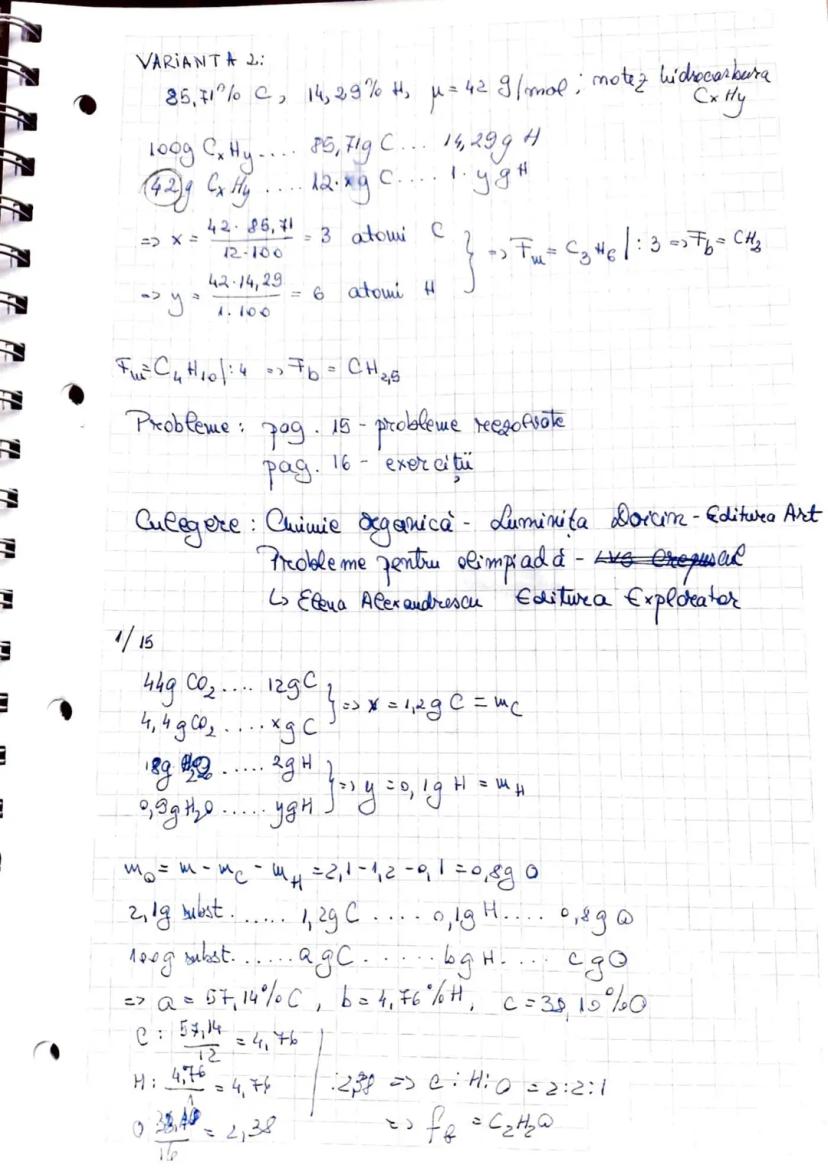 VARIANTA 2:
85,71% C, 14,29% H, μ = 42 g/mol; notez hidrocarbura
CxHy
100g CxHy.... 85,71g C... 14,29g H
42g CxHy .... 12·xg C.... 1·y g H
=> x = 42·85,71 / 12·100 = 3 atomi C
=> y = 42·14,29 / 1·100 = 6 atomi H
} => Fm = C3H6 |:3 => Fb = CH2
Fm = C4H10 |:4 => Fb = CH2,5
Probleme: pag. 15 - probleme rezolvate
pag. 16 - exerciții
Culegere: Chimie organică - Luminița Doicin - Editura Art
Probleme pentru olimpiadă -
↳ Elena Alexandrescu Editura Explorator
1/15
44g CO2.... 12gC
4,4gCO2....xgC
} => x = 1,2g C = mC
18g H2O ..... 2gH
0,9gH2O ..... ygH
} => y = 0,1g H = mH
mO = m - mC - mH = 2,1-1,2-0,1 = 0,8g O
2,1g subst. ..... 1,2gC .... 0,1g H.... 0,8g O
100g subst. ...... a gC ...... b g H.... c g O
=> a = 57,14% C, b = 4,76% H, c = 38,10% O
C: 57,14 / 12 = 4,76
H: 4,76 / 1 = 4,76
O 38,10 / 16 = 2,38
|:2,38 => C:H:O = 2:2:1
=> fb = C2H2O